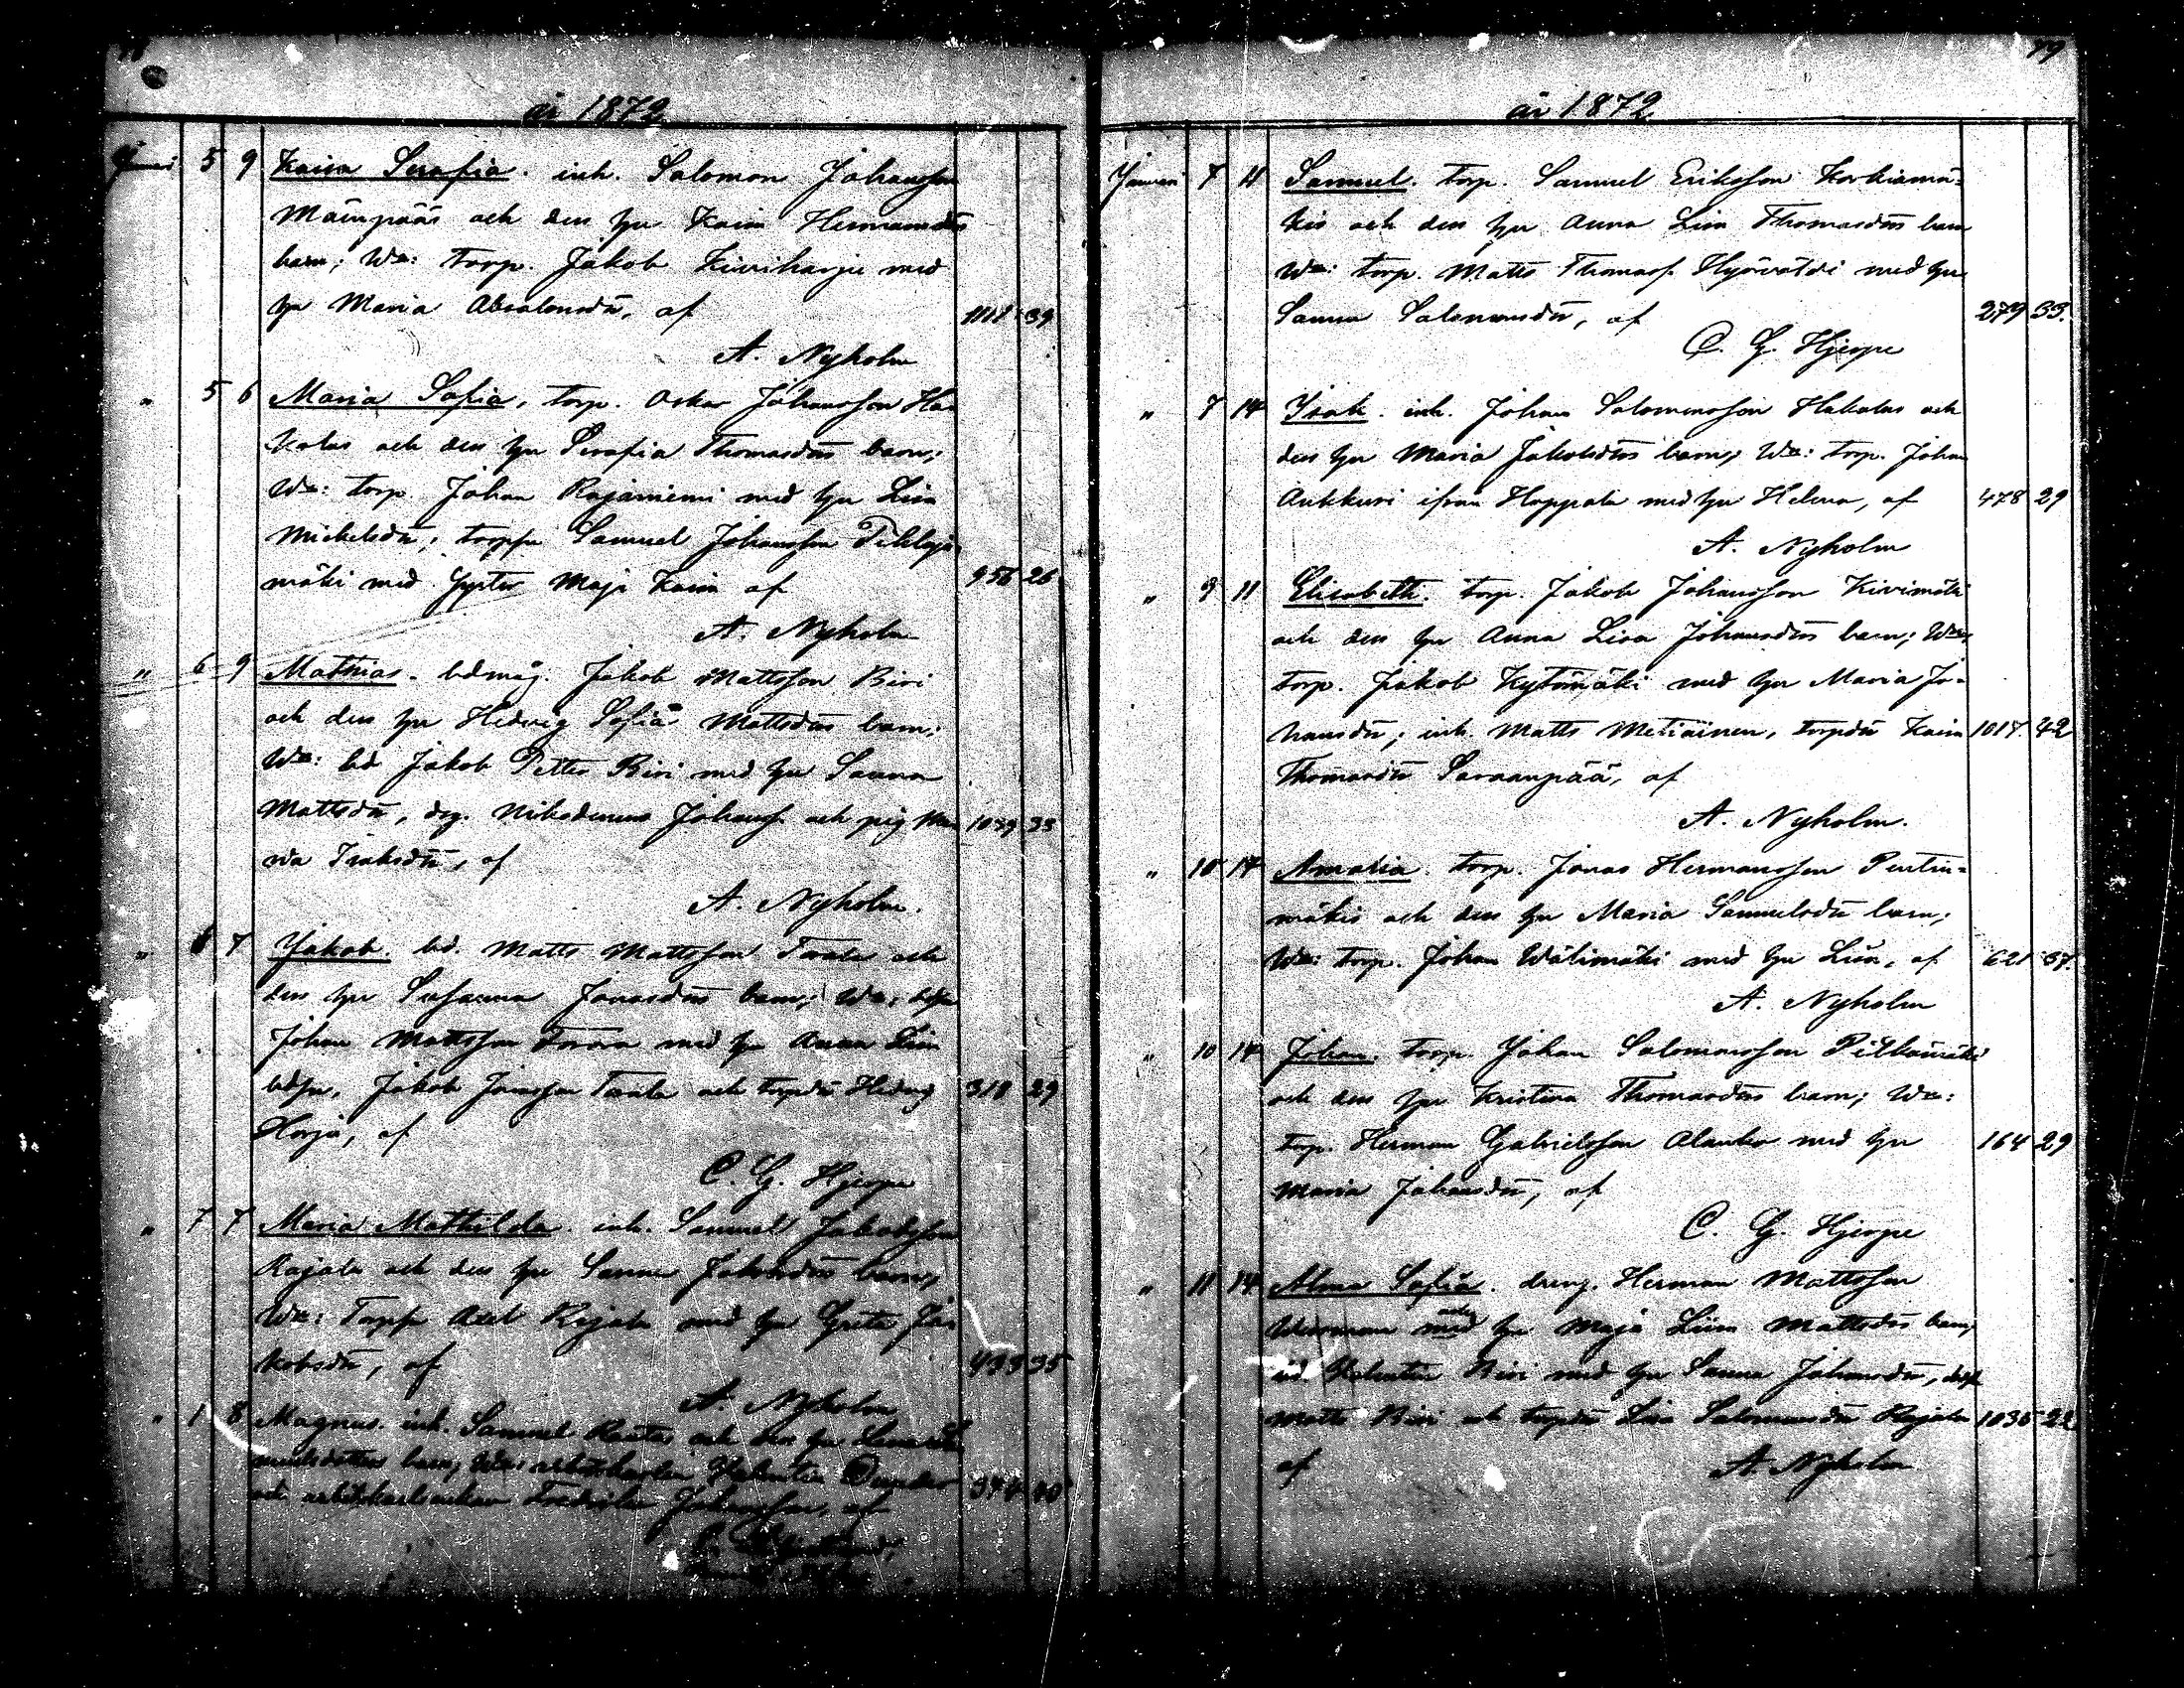 år 1872
Januari 5 9 Kaisa Serafia. inh. Salomon Johansson
Mäenpääs och dess hu Kaisa Hermansdrs
barn; Wn: torp. Jakob Kiviharju med
hu Maria Absalonsdr, af 1111 39
A. Nyholm
" 5 6 Maria Sofia, torp. Oskar Johansson Ha-
kolas och dess hu Serafia Thomasdrs barn;
Wn: torp. Johan Rajaniemi med hu Lisa
Michelsdr, torpson Samuel Johansson
mäki med syster Maja Kaisa af 956 26
A. Nyholm
" 6 9 Mathias. bdmåg. Jakob Mattsson Rivi
och dess hu Hedvig Sofia Mattsdrs barn;
Wn: bd Jakob Petter Rivi med hu Sanna
Mattsdr, drg. Nikodemus Johanss. och pig.
Isaksdr, af 1039 33
A. Nyholm.
" 6 7 Jakob. bd. Matts Mattsson och
dess hu Susanna Jonasdrs barn; Wn:
Johan Mattsson med hu Anna Lisa
bdson, Jakob och torpdr Hedvig 318 29
Harju, af
C. G. Hjerpe
" 7 7 Maria Mathilda. inh. Samuel Jakobsson
Rajala och dess hu Sanna barn;
Wn: Torpson Axel Rajala med hu Greta Ja-
kobsdr, af 433 35
A. Nyholm
" 1 8 Magnus. inh. Samuel och dess hu
barn; Wn: Valentin
och Johansson, af
79
år 1872
Januari 7 11 Samuel. torp. Samuel Eriksson Korkiamä-
kis och dess hu Anna Lisa Thomasdrs barn
Wn: torp. Matts Thomass. med hu
Sanna Salomonsdr, af 279 33.
C. G. Hjerpe
" 7 14 Isak. inh. Johan Salomonsson Hakalas och
dess hu Maria Jakobsdrs barn; Wn: torp. Johan
Aukkuri ifrån Happala med hu Helena, af 478 29
A. Nyholm
" 9 11 Elisabeth. torp. Jakob Johansson Kivimäki
och dess hu Anna Lisa Johansdrs barn; Wn:
torp. Jakob Kytömäki med hu Maria Jo-
hansdr; inh. Matts Metiäinen, torpdr Kaisa 1017. 42
Thomasdr Savanpää, af
A. Nyholm.
" 10 14 Amalia. torp. Jonas Hermansson Pentin-
mäkis och dess hu Maria Samuelsdr barn;
Wn: torp. Johan Wälimäki med hu Lisa, af 621 37.
A. Nyholm
" 10 14 Johan. torp. Johan Salomonsson Pilkamäki
och dess hu Kristina Thomasdrs barn; Wn:
torp. Herman Gabrielsson Alanko med hu 164 29
Maria Johansdr, af
C. G. Hjerpe
" 11 14 Alma Sofia. dreng. Herman Mattsson
och hu Maja Lisa Mattsdrs barn;
Valentin Rivi med hu Sanna Johansdr,
Matts Rivi och torpdr Lisa Salomonsdr Rajala 1035 22
af A. Nyholm